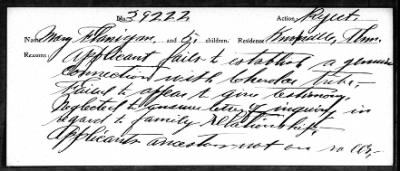 No. 39222 Action: Reject
Name Mary Flanigan and 5 children. Residence Tenn.
Reasons: Applicant fails to establish a genuine
connection with Cherokee Tribe,-
Failed to appear to give testimony.
Neglected to answer letter of inquiry in
regard to family relationship,-
Applicants ancestors not on rolls,-